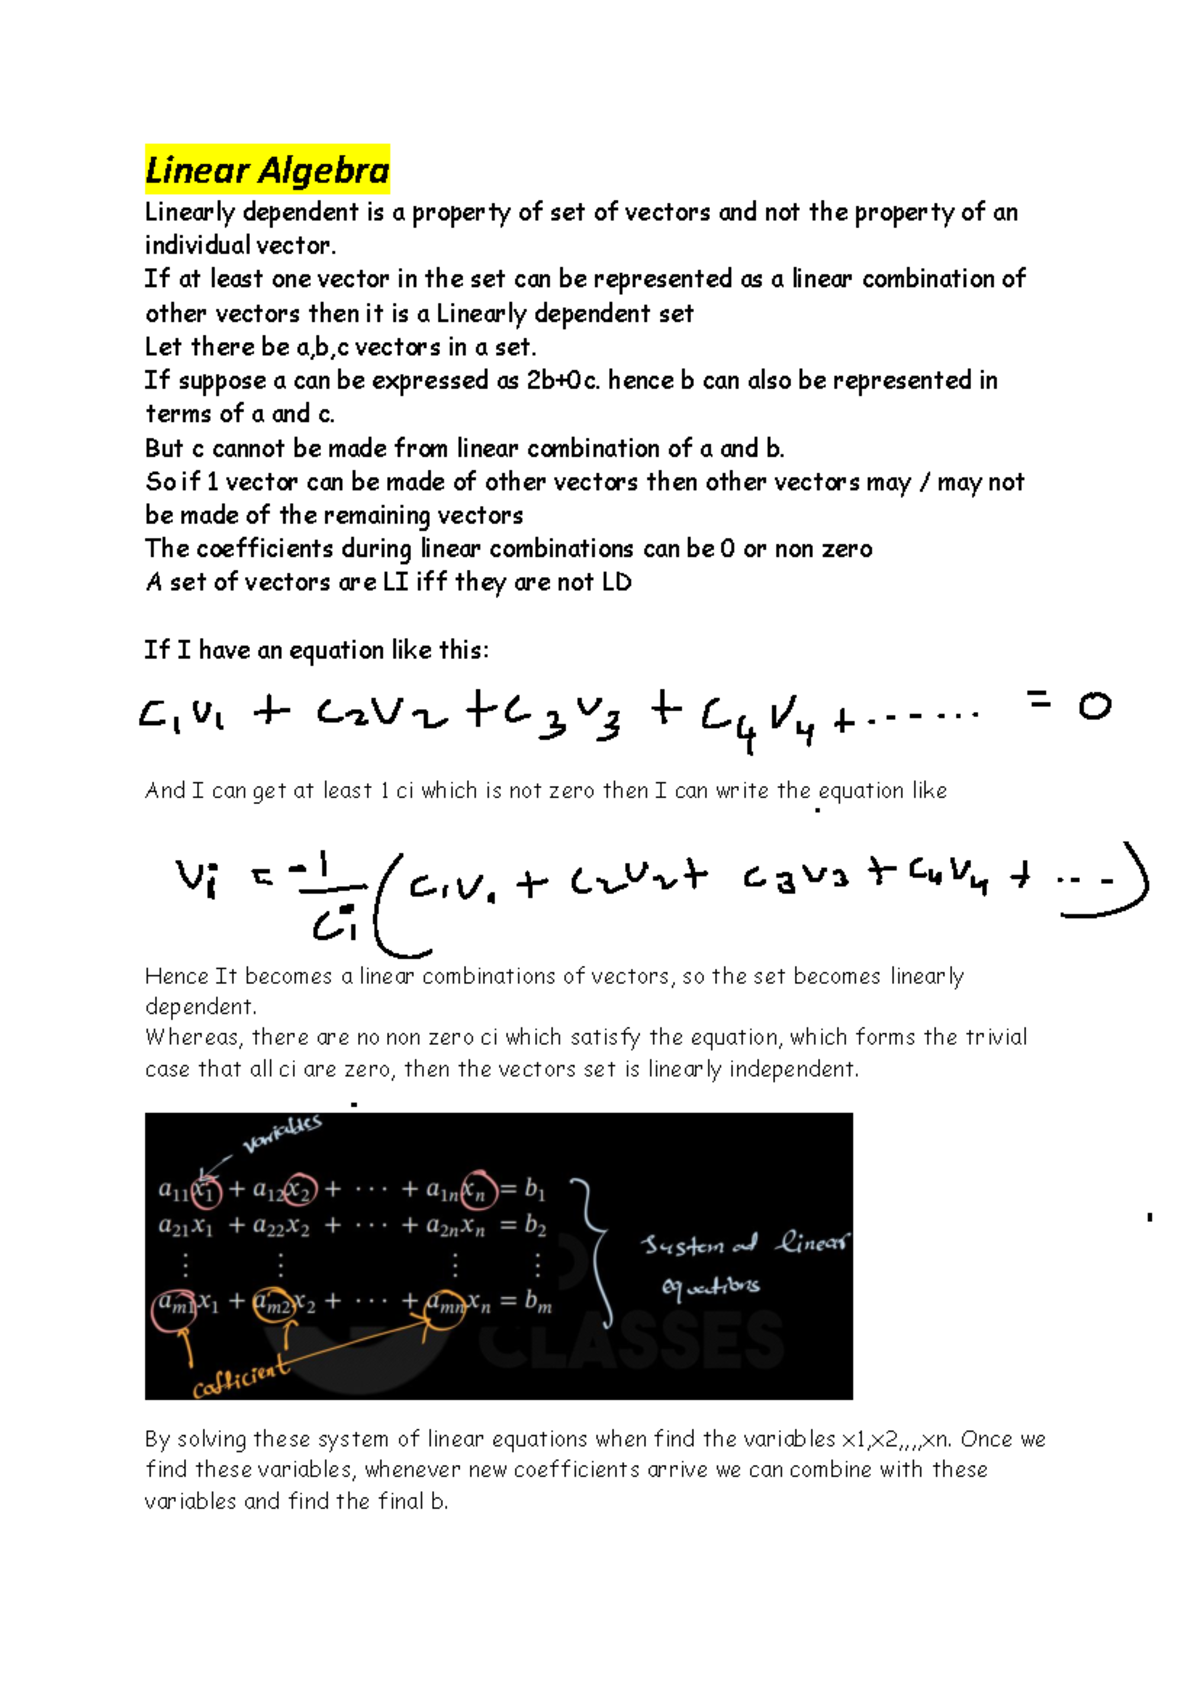 Linear Algebra
Linearly dependent is a property of set of vectors and not the property of an
individual vector.
If at least one vector in the set can be represented as a linear combination of
other vectors then it is a Linearly dependent set
Let there be a,b,c vectors in a set.
If suppose a can be expressed as 2b+0c. hence b can also be represented in
terms of a and c.
But c cannot be made from linear combination of a and b.
So if 1 vector can be made of other vectors then other vectors may / may not
be made of the remaining vectors
The coefficients during linear combinations can be 0 or non zero
A set of vectors are LI iff they are not LD
If I have an equation like this:
c₁v₁ + c₂v₂ + c₃v₃ + c₄v₄ + ....... = 0
And I can get at least 1 ci which is not zero then I can write the equation like
vi = -1/ci (c₁v₁ + c₂v₂ + c₃v₃ + c₄v₄ + ...)
Hence It becomes a linear combinations of vectors, so the set becomes linearly
dependent.
Whereas, there are no non zero ci which satisfy the equation, which forms the trivial
case that all ci are zero, then the vectors set is linearly independent.
variables
a₁₁x₁ + a₁₂x₂ + ··· + a₁ₙxₙ = b₁
a₂₁x₁ + a₂₂x₂ + ··· + a₂ₙxₙ = b₂
⋮ ⋮ ⋮ ⋮
System of linear
equations
aₘ₁x₁ + aₘ₂x₂ + ··· + aₘₙxₙ = bₘ
CLASSES
cofficient
By solving these system of linear equations when find the variables x1,x2,,,,xn. Once we
find these variables, whenever new coefficients arrive we can combine with these
variables and find the final b.